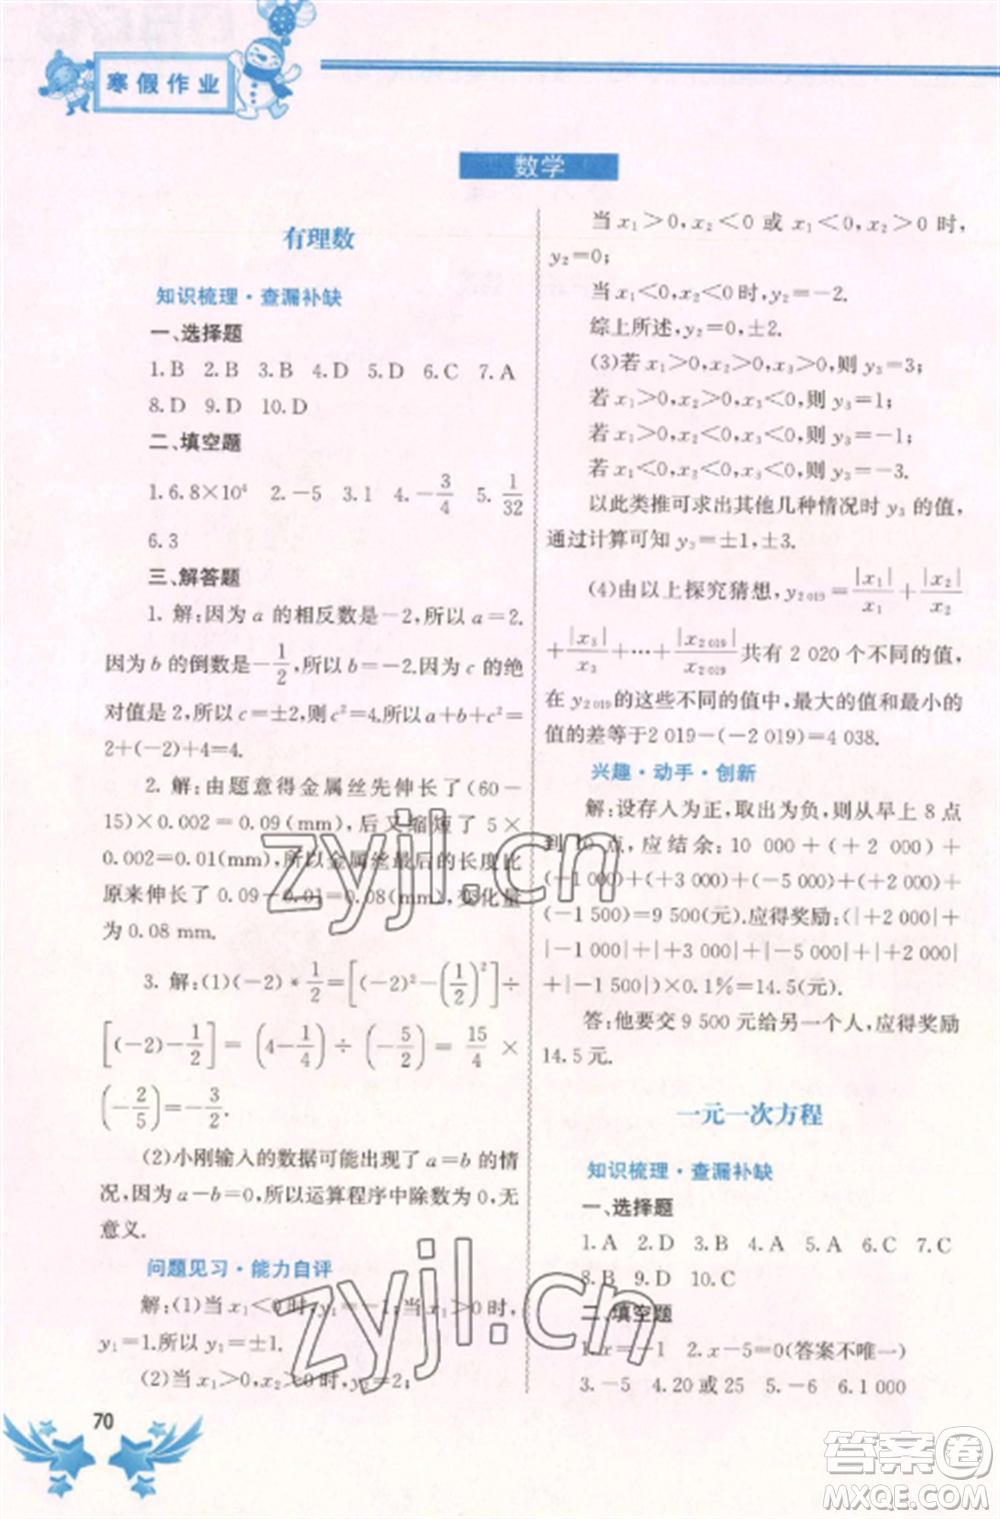 寒假作业
数学
有理数
知识梳理·查漏补缺
一、选择题
1.B 2.B 3.B 4.D 5.D 6.C 7.A
8.D 9.D 10.D
二、填空题
1.6.8×10⁴ 2.-5 3.1 4.-3/4 5.1/32
6.3
三、解答题
1.解:因为 a 的相反数是-2,所以 a=2.
因为 b 的倒数是-1/2,所以 b=-2.因为 c 的绝
对值是 2,所以 c=±2,则 c²=4.所以 a+b+c²=
2+(-2)+4=4.
2.解:由题意得金属丝先伸长了(60-
15)×0.002=0.09(mm),后又缩短了 5×
0.002=0.01(mm),所以金属丝最后的长度比
原来伸长了 0.09-0.01=0.08(mm),变化量
为 0.08 mm.
3.解:(1)(-2)*1/2=[(-2)²-(1/2)²]÷
[(-2)-1/2]=(4-1/4)÷(-5/2)=15/4×
(-2/5)=-3/2.
(2)小刚输入的数据可能出现了 a=b 的情
况,因为 a-b=0,所以运算程序中除数为 0,无
意义.
问题见习·能力自评
解:(1)当 x₁<0 时,y₁=-1;当 x₁>0 时,
y₁=1.所以 y₁=±1.
(2)当 x₁>0,x₂>0 时,y₂=2;
当 x₁>0,x₂<0 或 x₁<0,x₂>0 时,
y₂=0;
当 x₁<0,x₂<0 时,y₂=-2.
综上所述,y₂=0,±2.
(3)若 x₁>0,x₂>0,x₃>0,则 y₃=3;
若 x₁>0,x₂>0,x₃<0,则 y₃=1;
若 x₁>0,x₂<0,x₃<0,则 y₃=-1;
若 x₁<0,x₂<0,x₃<0,则 y₃=-3.
以此类推可求出其他几种情况时 y₃ 的值,
通过计算可知 y₃=±1,±3.
(4)由以上探究猜想,y₂ ₀₁₉=|x₁|/x₁+|x₂|/x₂
+|x₃|/x₃+…+|x₂ ₀₁₉|/x₂ ₀₁₉共有 2 020个不同的值,
在 y₂ ₀₁₉的这些不同的值中,最大的值和最小的
值的差等于2 019-(-2 019)=4 038.
兴趣·动手·创新
解:设存入为正,取出为负,则从早上 8 点
到 10 点,应结余:10 000+(+2 000)+
(+1 000)+(+3 000)+(-5 000)+
(-1 500)=9 500(元).应得奖励:(|+2 000|+
|+1 000|+|+3 000|+|-5 000|+
+|-1 500|)×0.1%=14.5(元).
答:他要交 9 500 元给另一个人,应得奖励
14.5 元.
一元一次方程
知识梳理·查漏补缺
一、选择题
1.A 2.D 3.B 4.C 5.C 6.C 7.C
8.B 9.D 10.C
二、填空题
1.x=-1 2.x-5=0(答案不唯一)
3.-5 4.20 或 25 5.-6 6.1 000
70
zyjl.cn
zyjl.cn
答案圈
MXQE.COM